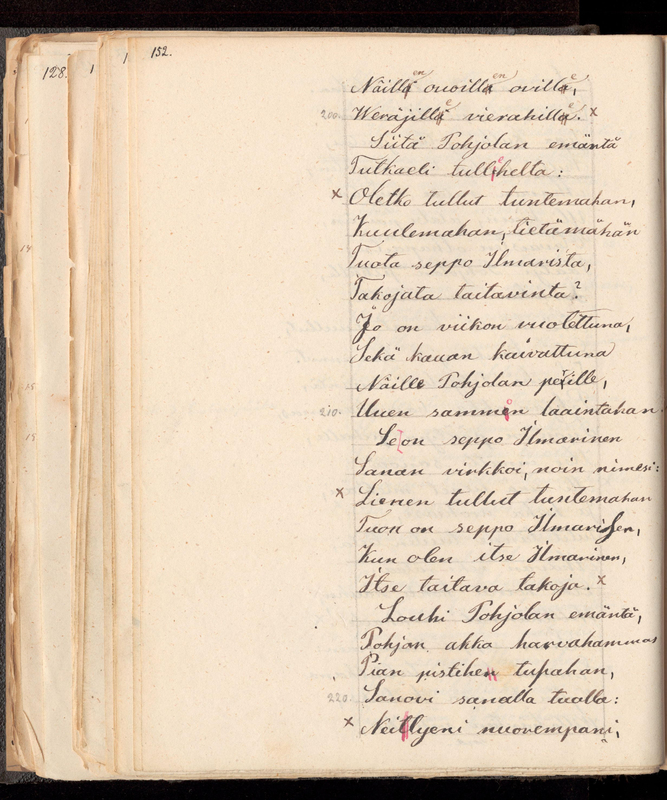 128.
152.
Näillä ouoilla ovilla,
200. Weräjillä vierahilla. x
Siitä Pohjolan emäntä
Tutkaeli tullehelta:
x Oletko tullut tuntemahan,
Kuulemahan, tietämähän
Tuota seppo Ilmarista,
Takojata taitavinta?
Jo on viikon vuotettuna,
Sekä kauan kaivattuna
Näille Pohjolan perille,
210. Uuen sammon laaintahan.
Se on seppo Ilmarinen
Sanan virkkoi, noin nimesi:
x Lienen tullut tuntemahan
Tuon on seppo Ilmarisen,
Kun olen itse Ilmarinen,
Itse taitava takoja. x
Louhi Pohjolan emäntä,
Pohjan akka harvahammas
Pian pistihen tupahan,
220. Sanovi sanalla tuolla:
x Neitlyeni nuorempani,